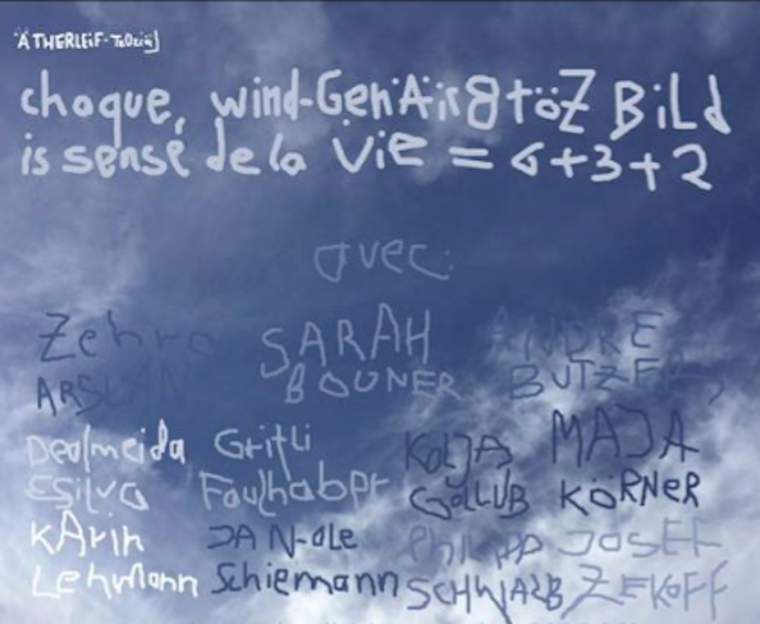 ÄTHERLEiF-TzOziN]
choque, wind-GenÄirgtöZ BiLd
is sensé de la Vie = 6+3+2
avec:
Zehra SARAH ANDRE
ARSLAN BOUNER BUTZER,
Dealmeida Gritli KOLJA MAJA
ESilva Faulhaber GOLLUB KÖRNER
KArin JAN-Ole PHILIPP JOSEF
Lehmann Schiemann SCHWALB ZEKOFF